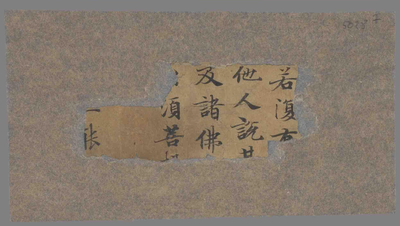 若復有
他人說其
及諸佛
須菩提
一